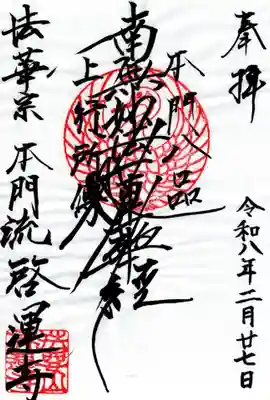 奉拝
本門八品
上行所傳
南無妙法蓮華経
令和八年二月廿七日
法華宗 本門流 啓運寺